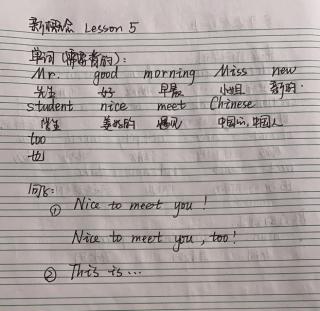 新概念 Lesson 5
单词(需要背的):
Mr. good morning Miss new
先生 好 早晨 小姐 新的
student nice meet Chinese
学生 美好的 遇见 中国的,中国人
too
也
句子:
① Nice to meet you!
Nice to meet you, too!
② This is...